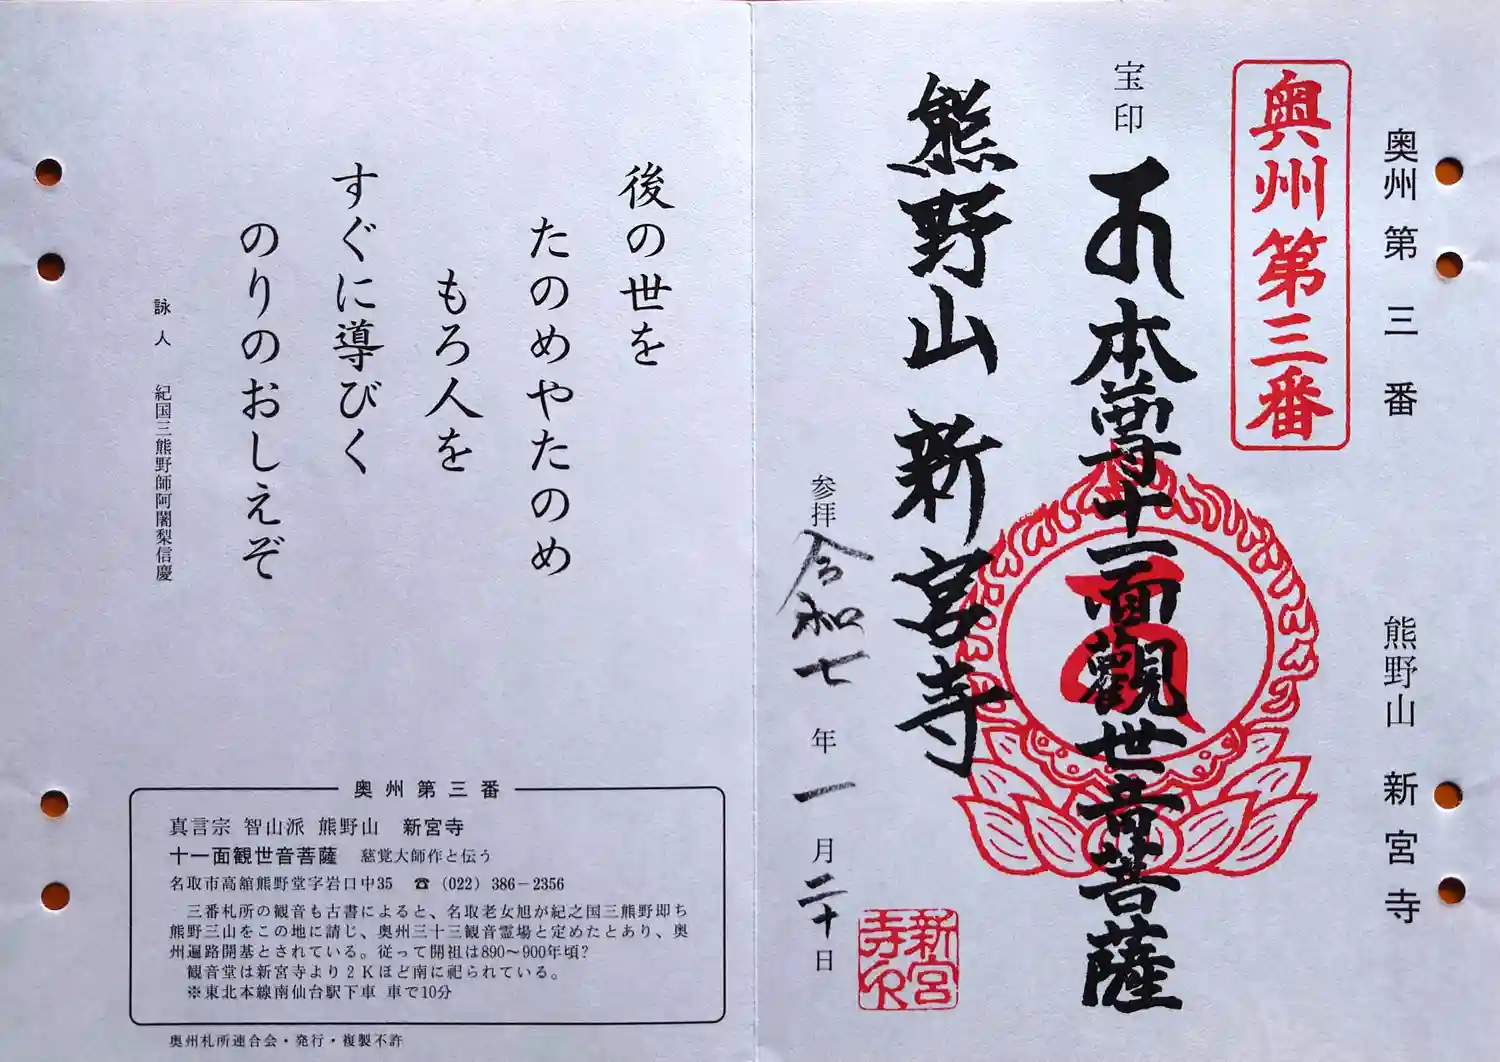 奥州第三番　熊野山　新宮寺
奥州第三番
宝印
本尊十一面觀世音菩薩
熊野山　新宮寺
参拝　令和七年一月二十日
新宮寺印
後の世を
たのめやたのめ
もろ人を
すぐに導びく
のりのおしえぞ
詠人　紀国三熊野師阿闍梨信慶
奥州第三番
真言宗 智山派 熊野山　新宮寺
十一面観世音菩薩　慈覚大師作と伝う
名取市高舘熊野堂字岩口中35　☎（022）386－2356
三番札所の観音も古書によると、名取老女旭が紀之国三熊野即ち
熊野三山をこの地に請じ、奥州三十三観音霊場と定めたとあり、奥
州遍路開基とされている。従って開祖は890～900年頃?
観音堂は新宮寺より２Kほど南に祀られている。
※東北本線南仙台駅下車 車で10分
奥州札所連合会・発行・複製不許